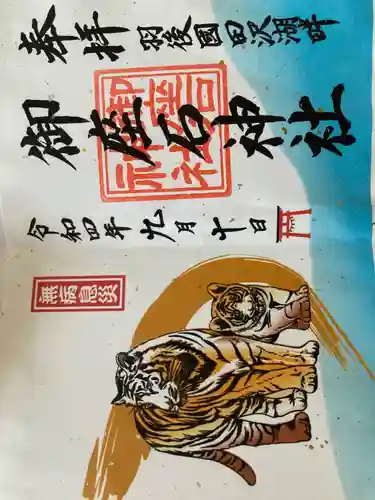 奉拝
羽後國田沢湖畔
御座石神社
御座石神社
令和四年九月十日
無病息災